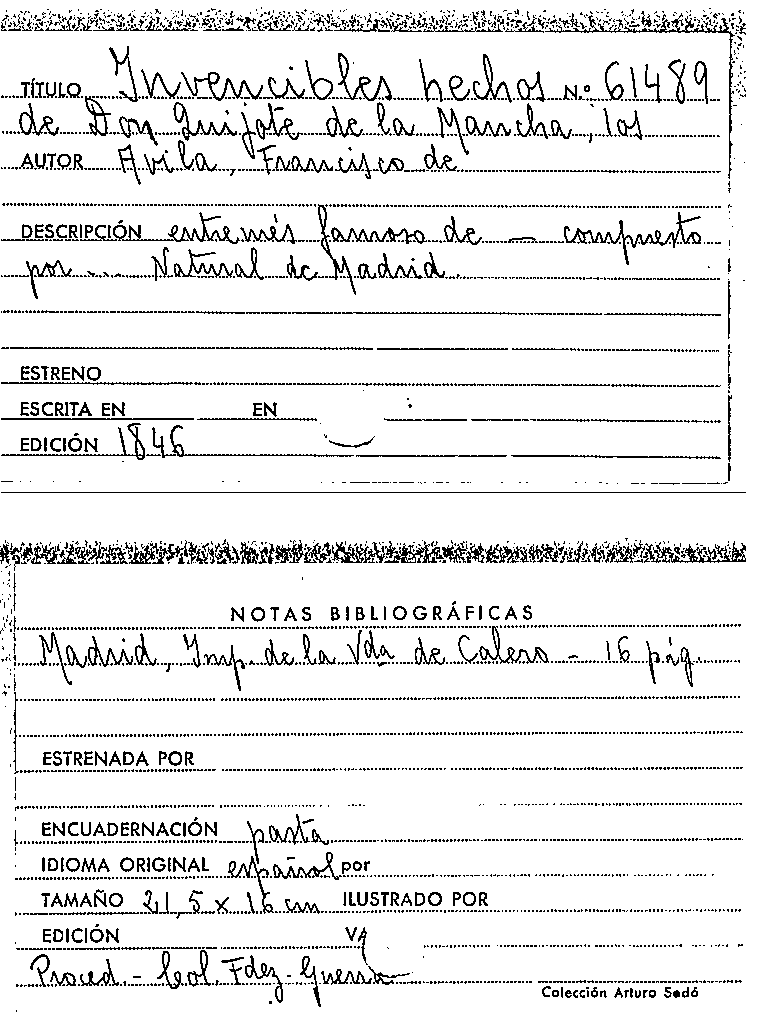 TÍTULO Invencibles hechos N.º 61489
de Don Quijote de la Mancha, los
AUTOR Avila, Francisco de
DESCRIPCIÓN entremés famoso de — compuesto
por ... Natural de Madrid.
ESTRENO
ESCRITA EN EN
EDICIÓN 1846
NOTAS BIBLIOGRÁFICAS
Madrid, Imp. de la Vda de Calero - 16 pág.
ESTRENADA POR
ENCUADERNACIÓN pasta
IDIOMA ORIGINAL español por
TAMAÑO 21,5 x 16 cm ILUSTRADO POR
EDICIÓN
Proced. - Col. Fdez-Guerra
Colección Arturo Sedó